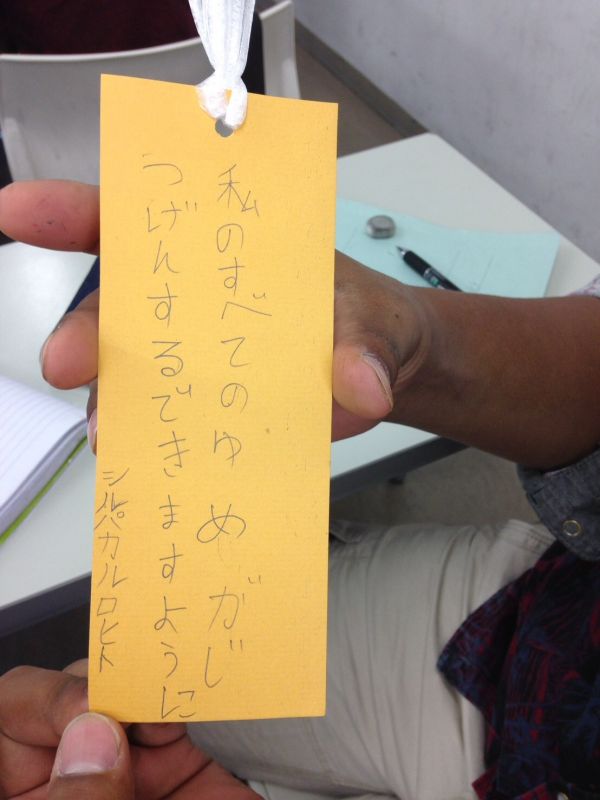 私のすべてのゆめがじ
つげんするできますように
シルパカルロヒト